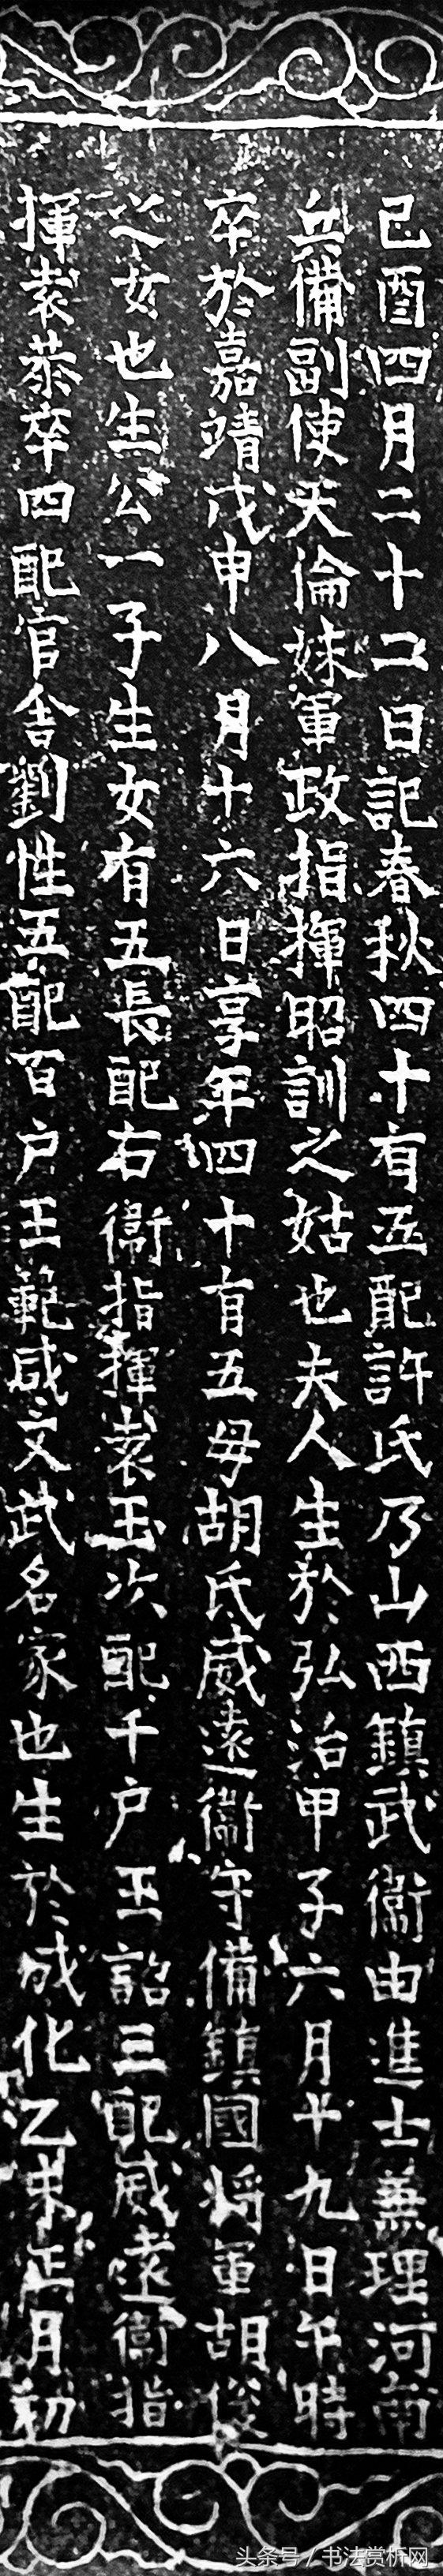 己酉四月二十二日記春秋四十有五配許氏乃山西鎮武衞由進士兼理河南
兵備副使天倫妹軍政指揮昭訓之姑也夫人生於弘治甲子六月十九日午時
卒於嘉靖戊申八月十六日享年四十有五母胡氏威遠衞守備鎮國將軍胡俊
之女也生公一子生女有五長配右衞指揮袁玉次配千户王詔三配威遠衞指
揮袁恭卒四配官舍劉性五配百户王範咸文武名家也生於成化乙未正月初
头条号 / 书法赏析网